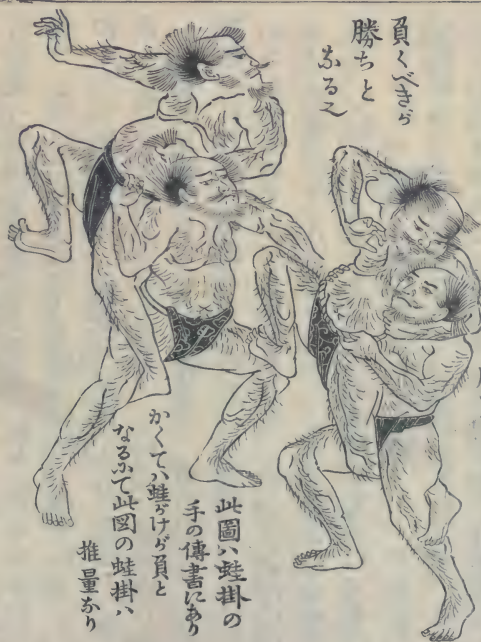 負くべきが
勝ちと
なる之
此圖ハ蛙掛の
手の傳書にあり
かくてハ蛙がけが負と
なるふて此図の蛙掛ハ
推量なり